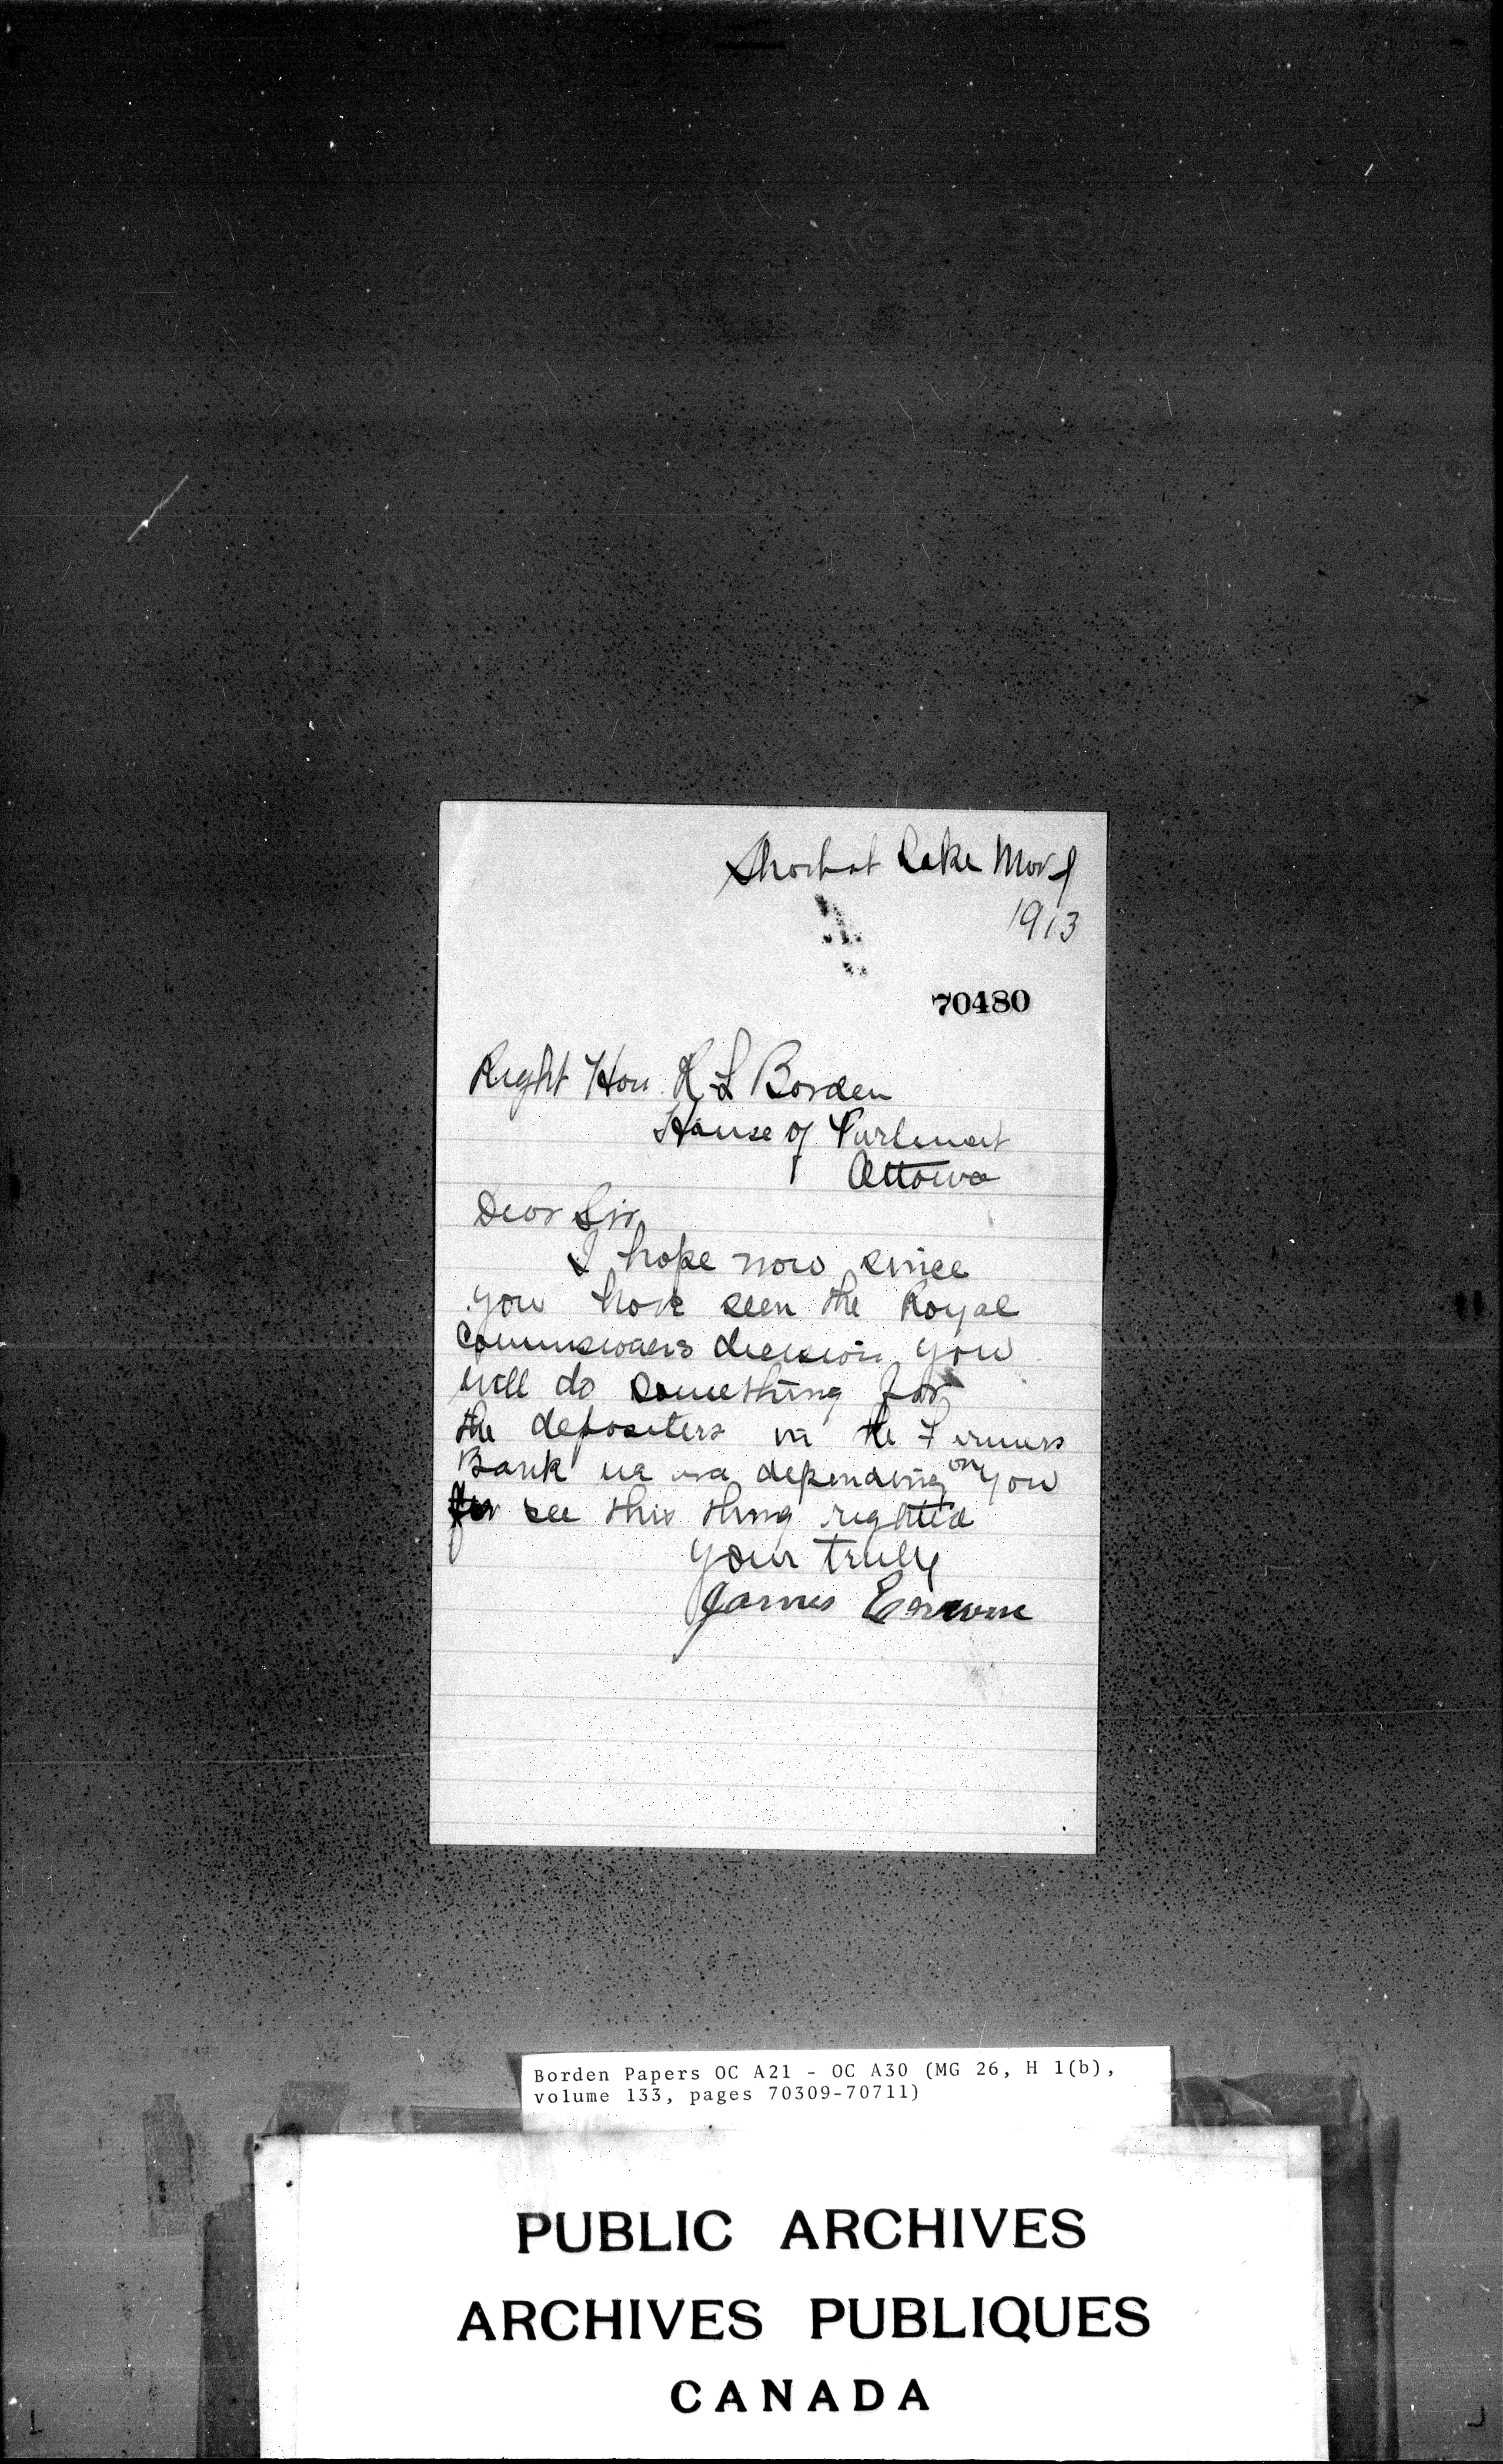 Shorbot Lake Mar 1
1913
70480
Right Hon. R L Borden
House of Parlement
Ottowa
Dear Sir
I hope now since
you have seen the Royal
Commissioners decision you
will do something for
the depositers in the Farmers
Bank we are depending on you
for see this thing righted
your truly
James
Borden Papers OC A21 - OC A30 (MG 26, H 1(b),
volume 133, pages 70309-70711)
PUBLIC ARCHIVES
ARCHIVES PUBLIQUES
CANADA